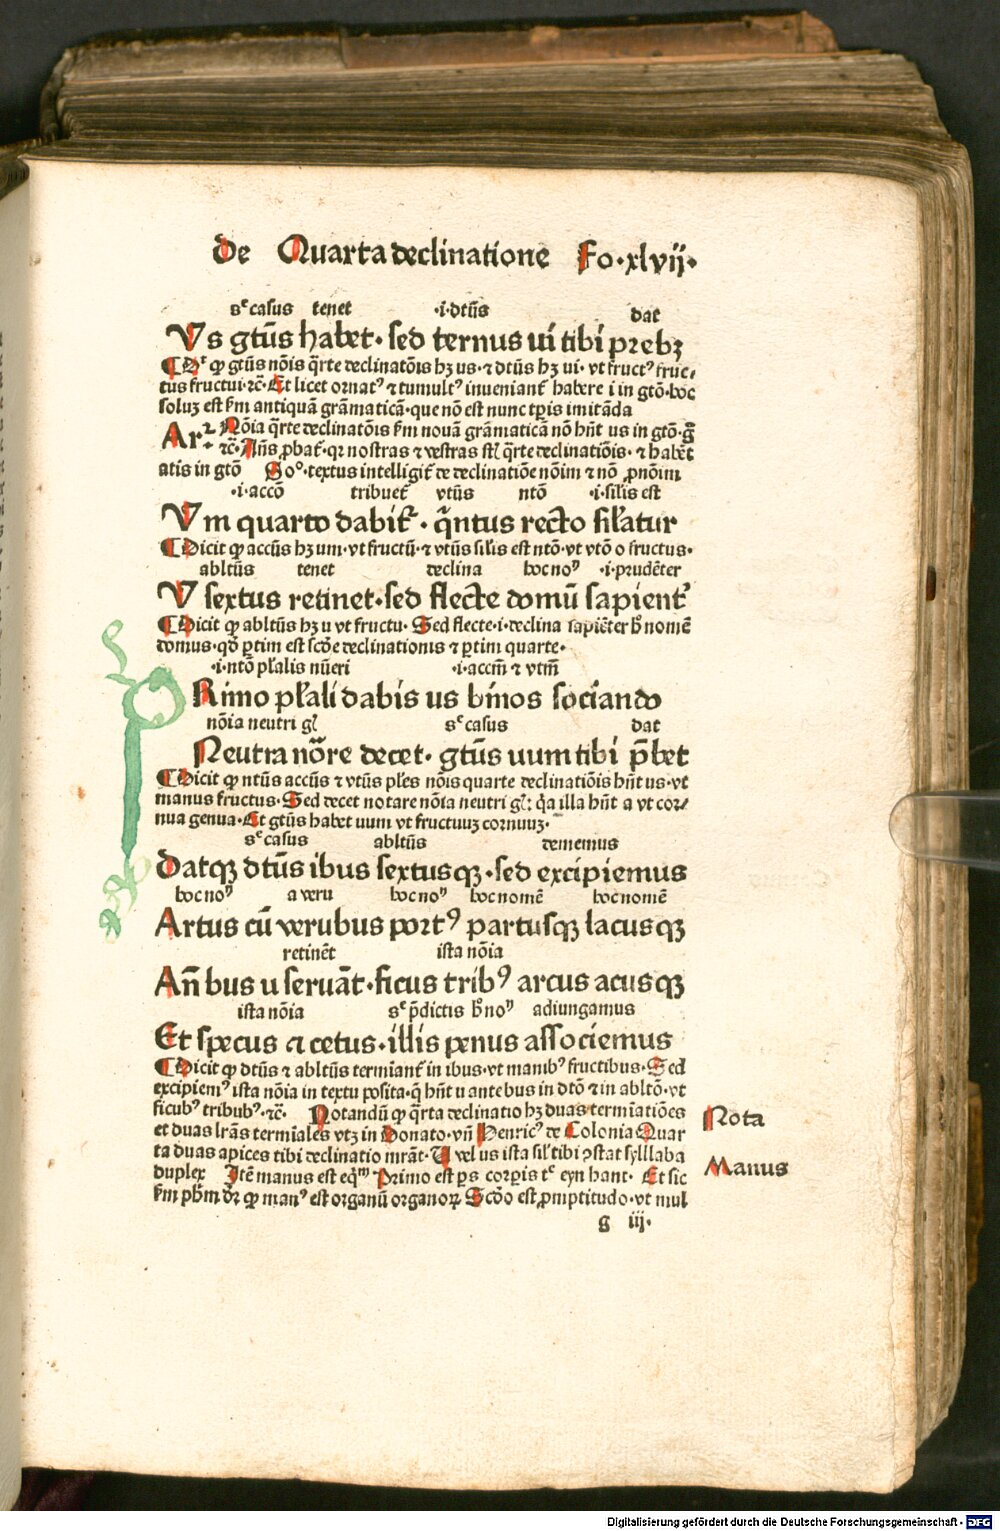 De Quarta declinatione Fo·xlvij·
sᶜ casus tenet ·i·dtūs dat
Us gtūs habet· sed ternus ui tibi prebꝫ
ꝙ gtūs nōis q̄rte declinatōis hꝫ us· ⁊ dtūs hꝫ ui· vt fructꝰ fruc⸗
tus fructui·⁊c̄· Et licet ornatꝰ ⁊ tumultꝰ inueniant̄ habere i in gtō·hoc
soluꝫ est s̄m antiquā grāmaticā·que nō est nunc tp̄is imitāda
Ar Nōia q̄rte declinatōis s̄m nouā grāmaticā nō hn̄t us in gtō·ḡ
⁊c̄· Ans ꝓbat̄·qꝛ nostras ⁊ vestras st̄ q̄rte declinatiōis· ⁊ habēt
atis in gtō So°·textus intelligit̄ de declinatiōe nōim ⁊ nō ꝓnōim
·i·accō tribuet̄ vtūs ntō ·i·silis est
Um quarto dabit̄ · q̄ntus recto sil̄atur
¶Dicit ꝙ accūs hꝫ um·vt fructū·⁊ vtūs silis est ntō·vt vtō o fructus·
abltūs tenet declina hoc noⁿ ·i·prudēter
U sextus retinet·sed flecte domū sapient̄
¶Dicit ꝙ abltūs hꝫ u vt fructu· Sed flecte·i·declina sapiēter h̄ nomē
domus·qd̄ ꝑtim est scd̄e declinationis ⁊ ꝑtim quarte·
·i·ntō pl̄alis nūeri ·i·accm̄ ⁊ vtm̄
PRimo pl̄ali dabis us binos sociando
nōia neutri gl̄ sᶜ casus dat
Neutra nōre decet· gtūs uum tibi p̄bet
¶Dicit ꝙ ntūs accūs ⁊ vtūs pl̄es nōis quarte declinatiōis hn̄t us·vt
manus fructus· Sed decet notare nōia neutri gl̄: q̄a illa hn̄t a vt cor⸗
nua genua·Et gtūs habet uum vt fructuuꝫ cornuuꝫ·
sᶜ casus abltūs dememus
Datqꝫ dtūs ibus sextusqꝫ·sed excipiemus
hoc noⁿ a veru hoc noⁿ hoc nomē hoc nomē
Artus cū verubus portꝰ partusqꝫ lacusqꝫ
retinēt ista nōia
An̄ bus u seruāt·ficus tribꝰ arcus acusqꝫ
ista nōia sᶜ p̄dictis h̄ noⁿ adiungamus
Et specus a cetus·illis penus associemus
¶Dicit ꝙ dtūs ⁊ abltūs termiant̄ in ibus·vt manibꝰ fructibus· Sed
excipiemꝰ ista nōia in textu posita·q̄ hn̄t u ante bus in dtō ⁊ in abltō·vt
ficubꝰ tribubꝰ·⁊c̄· Notandū ꝙ q̄rta declinatio hꝫ duas termiatiōes
et duas lr̄as termiales vtꝫ in Donato·vn̄ Henricꝰ de Colonia Quar
ta duas apices tibi declinatio mrāt· U vel us ista sil̄ tibi ꝯstat syllaba
duplex Itē manus est eq̄ᵐ Primo est ps corꝑis tᶜ eyn hant· Et sic
s̄m ph̄m dr̄ ꝙ manꝰ est organū organoꝝ Scd̄o est ꝓmptitudo·vt mul
g iij·
Nota
Manus
Digitalisierung gefördert durch die Deutsche Forschungsgemeinschaft - DFG